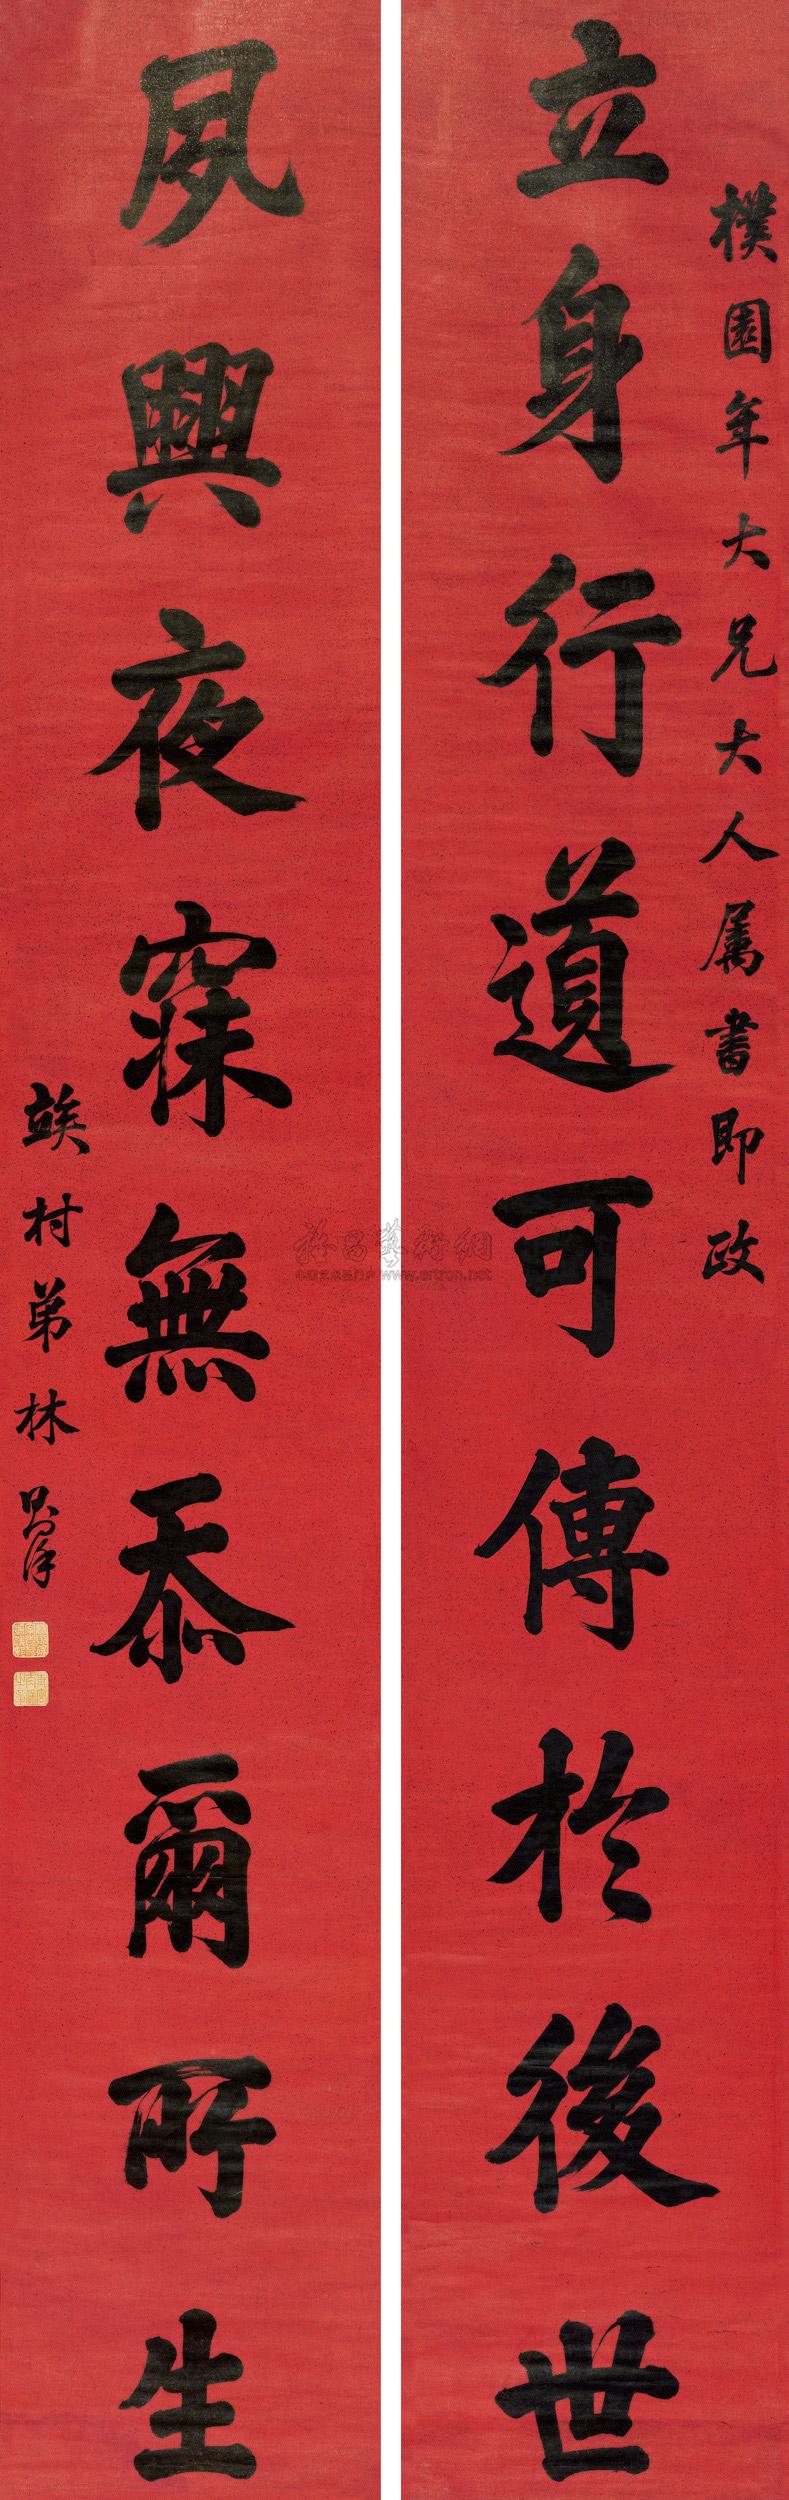 樸園年大兄大人属書即政
立身行道可傳於後世
夙興夜寐無忝爾所生
竢村弟林則徐
雅昌藝術網
www.artron.net